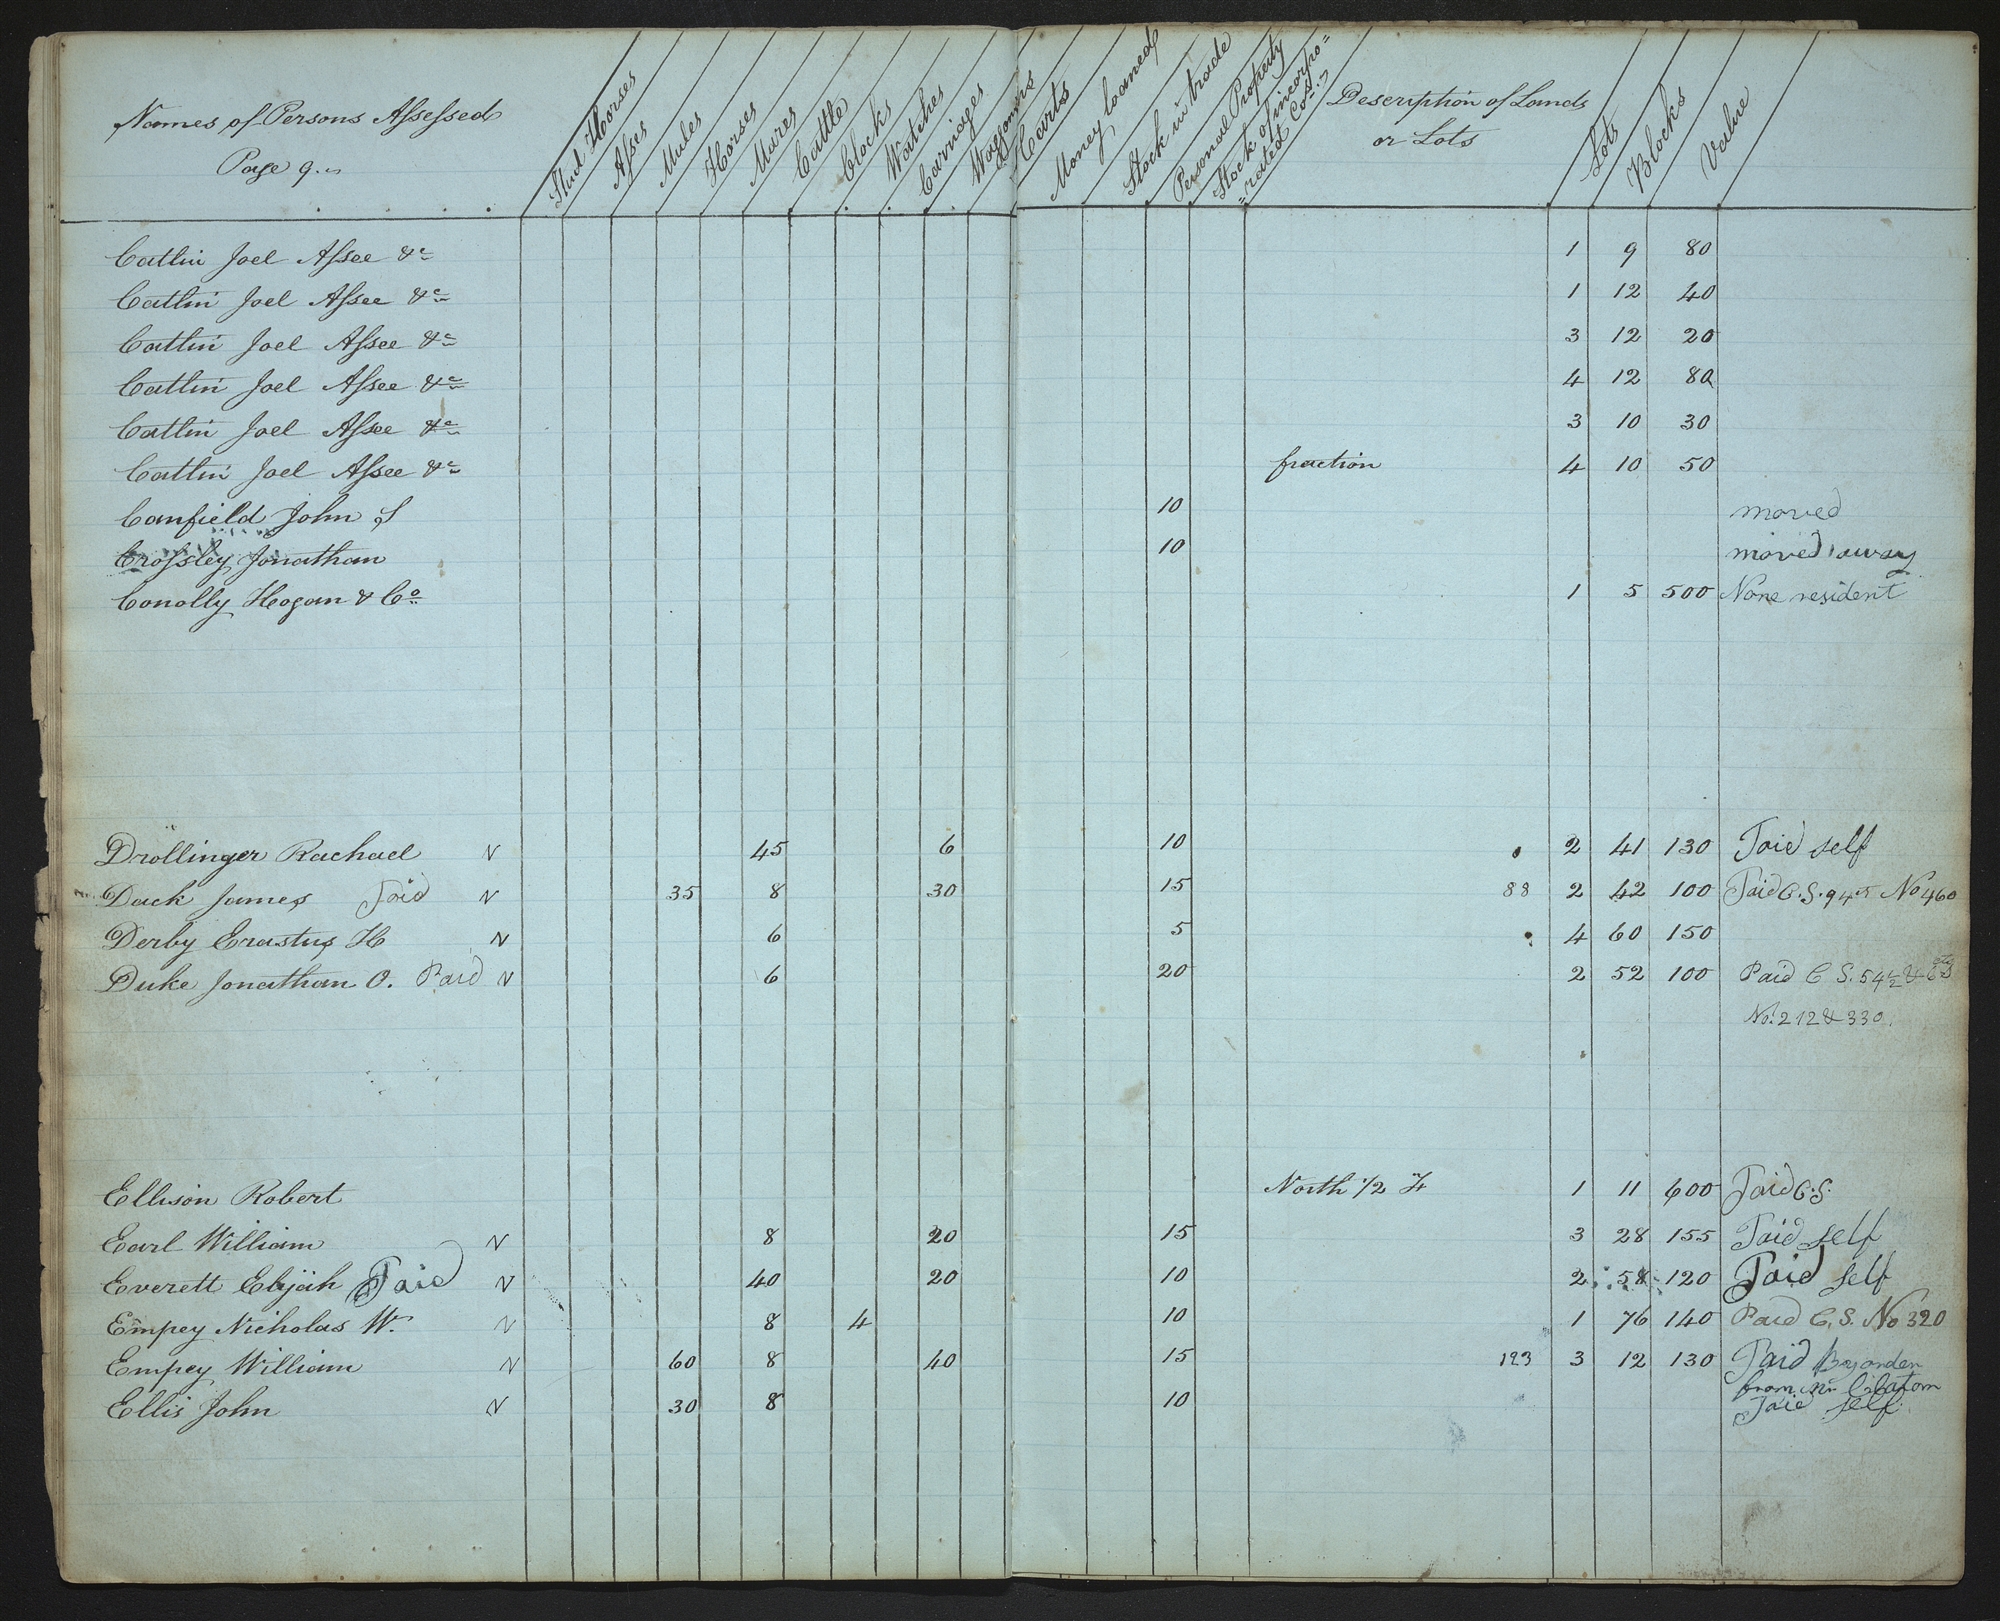 Names of Persons Assessed
Page 9.
Stud Horses
Asses
Mules
Horses
Mares
Cattle
Clocks
Watches
Carriages
Wagons &
Carts
Money loaned
Stock in trade
Personal Property
Stock of incorpo=
=rated Cos.
Description of Lands
or Lots
Lots
Blocks
Value
Catlin Joel Assee &c 1 9 80
Catlin Joel Assee &c 1 12 40
Catlin Joel Assee &c 3 12 20
Catlin Joel Assee &c 4 12 80
Catlin Joel Assee &c 3 10 30
Catlin Joel Assee &c fraction 4 10 50
Canfield John S 10 moved
Crossley Jonathan 10 moved away
Conolly Hogan & Co 1 5 500 None resident
Drollinger Rachael N 45 6 10 2 41 130 Paid self
Dack James Paid N 35 8 30 15 88 2 42 100 Paid C.S. No 460
Derby Erastus H N 6 5 4 60 150
Duke Jonathan O. Paid N 6 20 2 52 100 Paid C S. 54½ &
No. 212 & 330.
Ellison Robert North 1/2 1 11 600 Paid C.S.
Earl William N 8 20 15 3 28 155 Paid self
Everett Elijah Paid N 40 20 10 2 58 120 Paid self
Empey Nicholas W. N 8 4 10 1 76 140 Paid C.S. No 320
Empey William N 60 8 40 15 123 3 12 130 Paid By order
from Mr
Ellis John N 30 8 10 Paid self